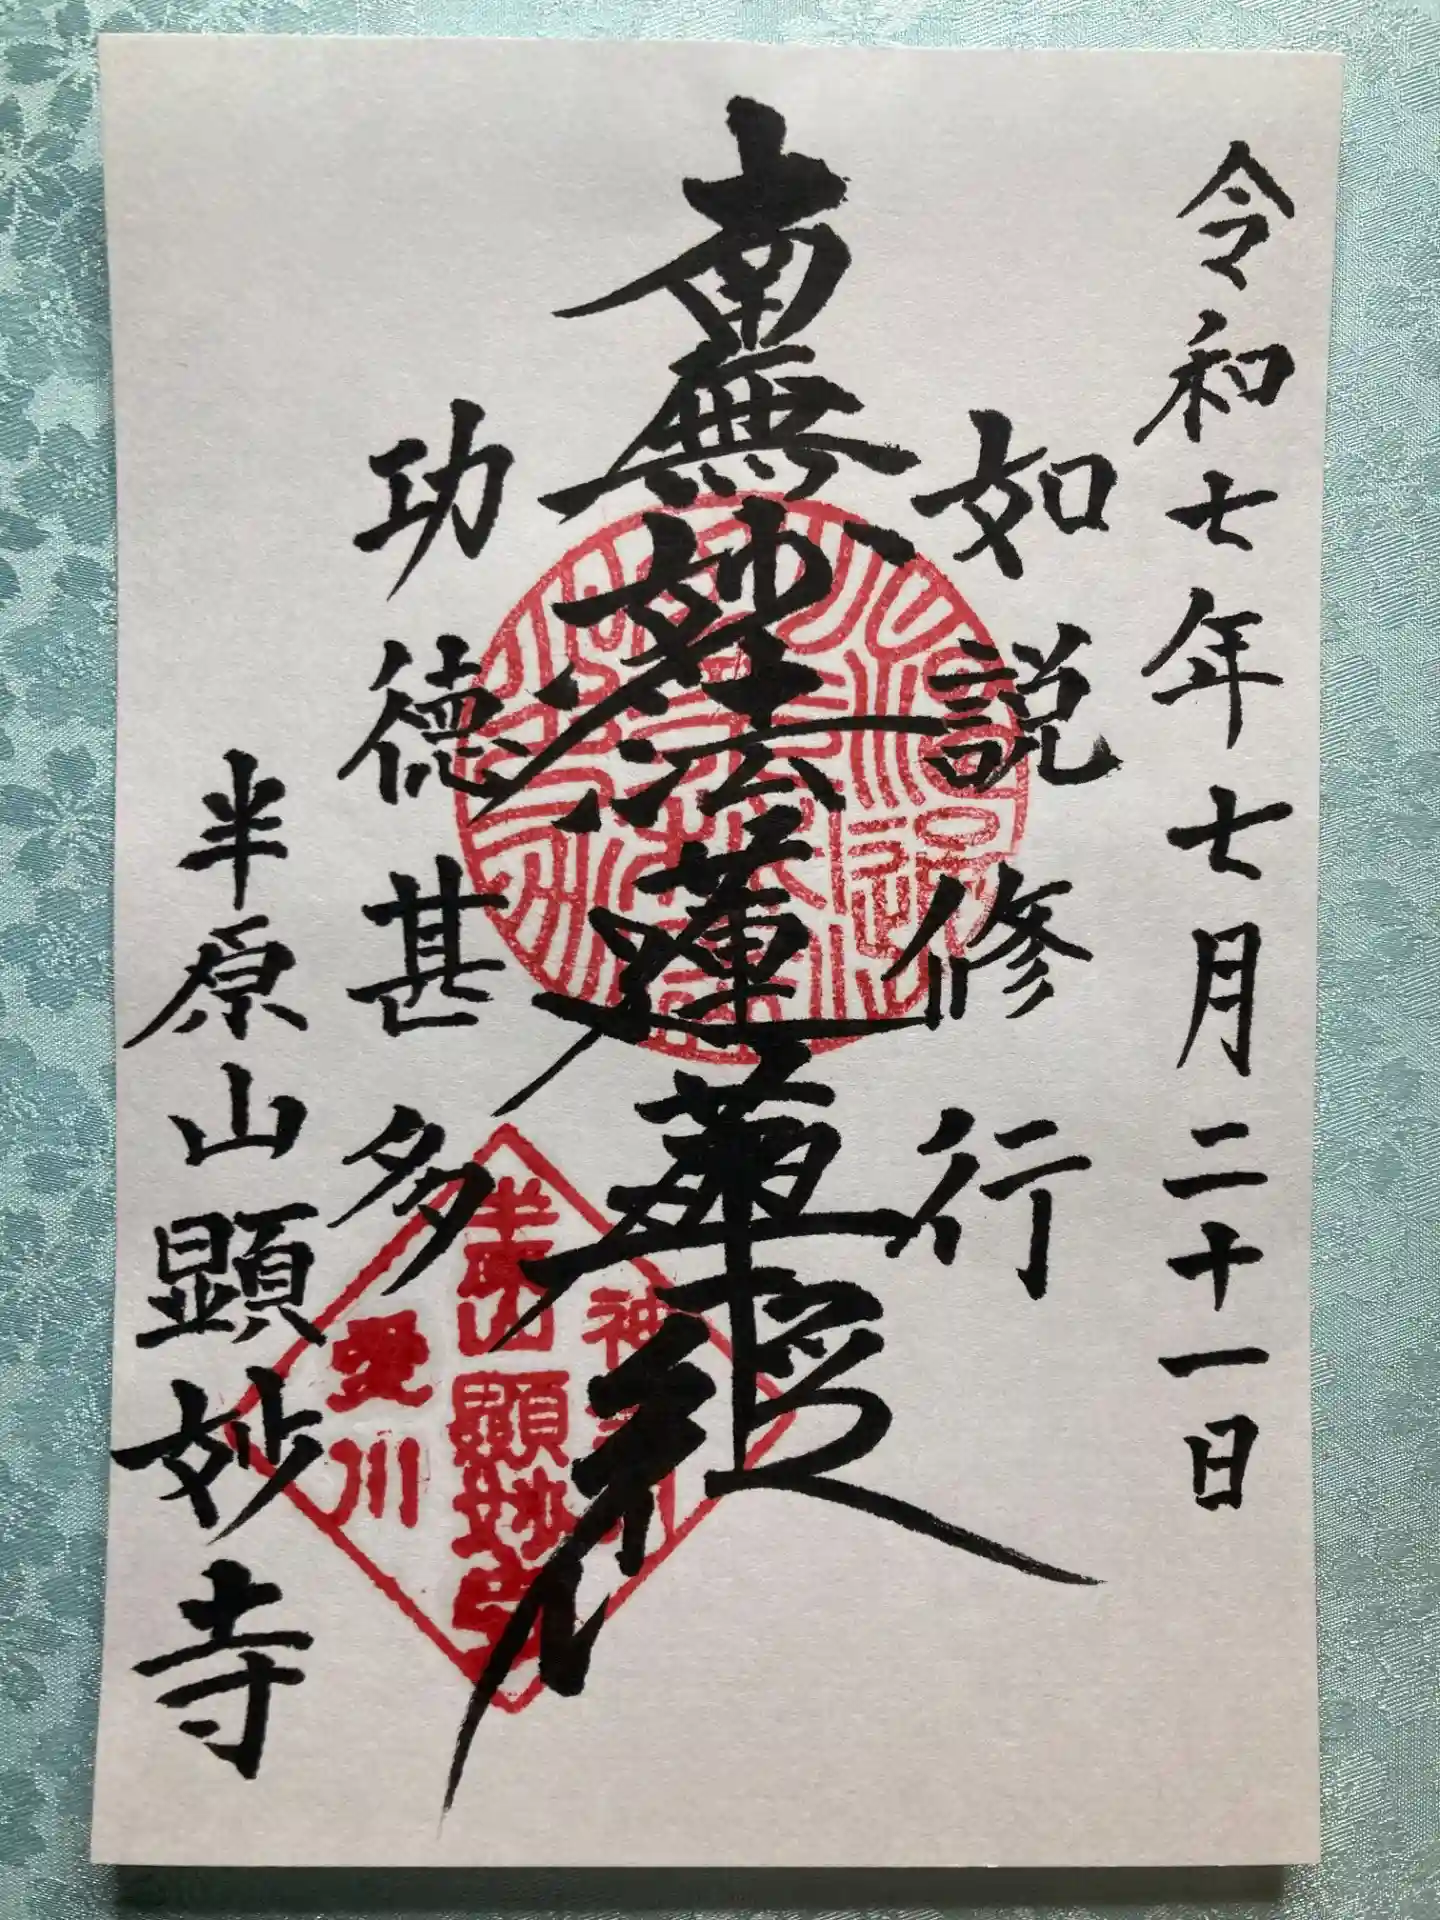 令和七年七月二十一日
如説修行
南無妙法蓮華経
功德甚多
半原山顕妙寺
半原山顯妙寺
愛川